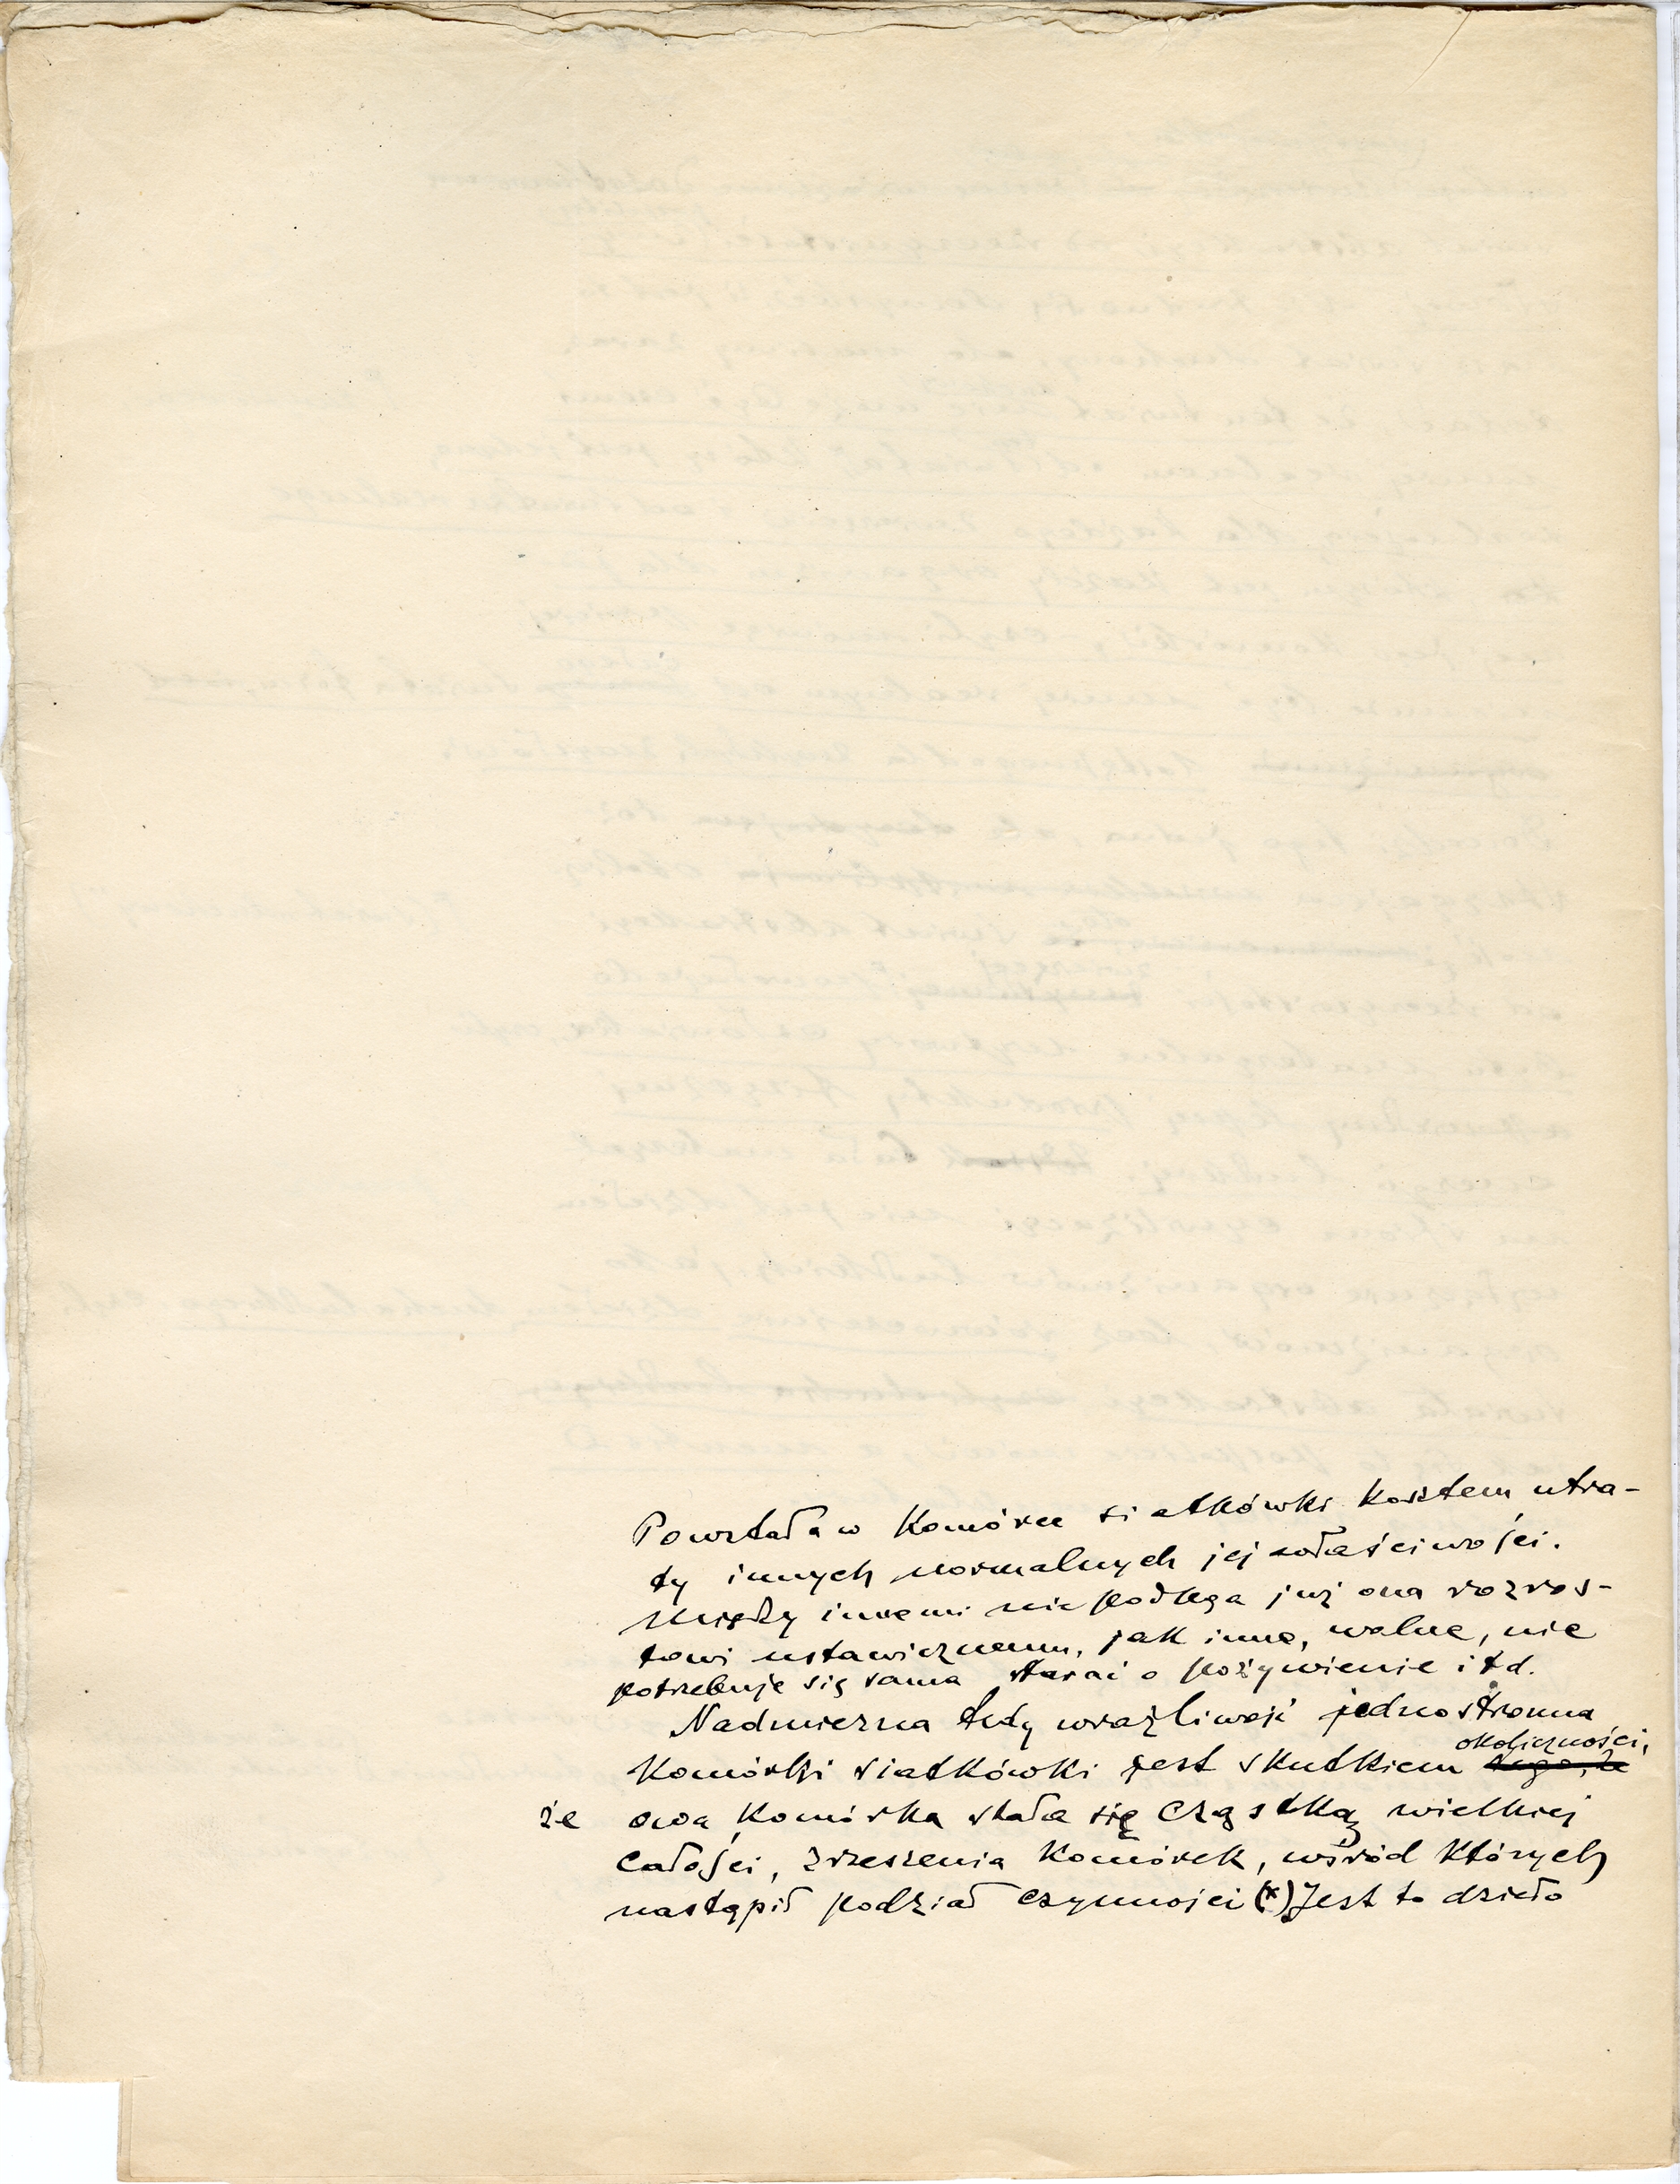 Powstała w Komórce siatkówki kosztem utra-
ty innych normalnych jej właściwości.
Między innemi nie podlega już ona rozros-
towi ustawicznemu, jak inne, wolne, nie
potrzebuje się sama starać o pożywienie itd.
Nadmierna tedy wrażliwość jednostronna
okoliczności,
Komórki siatkówki jest skutkiem tego, że
że owa Komórka stała się Cząstką wielkiej
Całości, Zrzeszenia Komórek, wśród Których
nastąpił podział Czynności (*) Jest to dzieło